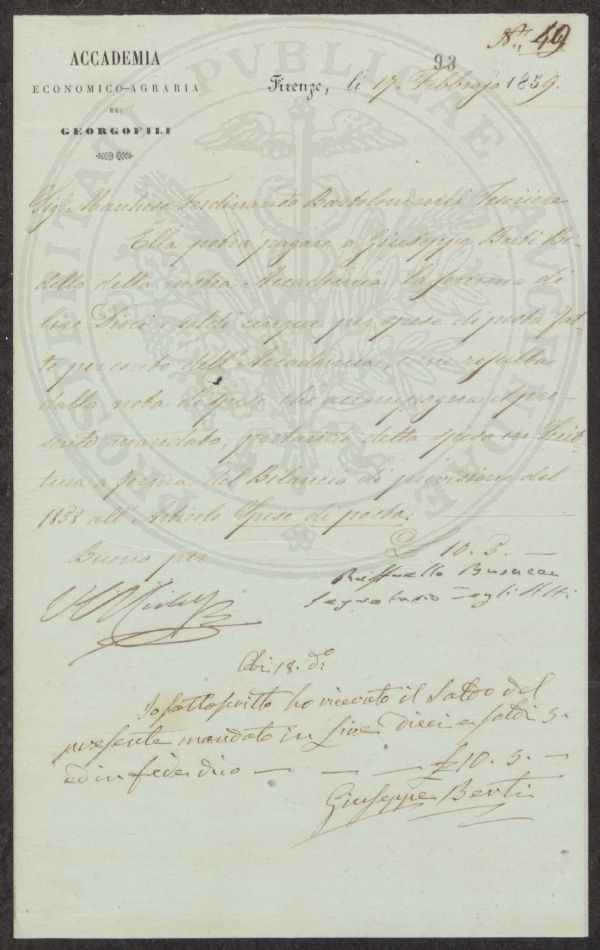 N.° 49
93
ACCADEMIA
ECONOMICO-AGRARIA
DEI
GEORGOFILI
Firenze, li 17. Febbrajo 1859.
PROSPERITATI PUBLICAE AUGENDAE
Sig. Marchese Ferdinando Bartolommei Tesoriere
Ella potrà pagare a Giuseppe Berti Bi-
dello della nostra Accademia la somma di
lire Dieci e soldi cinque per spese di posta fat-
te per conto dell'Accademia, come resulta
dalla nota di spese che accompagna il pre-
sente mandato; portando detta spesa in Scrit-
tura a forma del Bilancio di previsione del
1858 all'Articolo Spese di posta.
Buono per £ 10. 5. —
Raffaello Busacca
Segretario degli Atti
Adi 18. d.°
Io sottoscritto ho ricevuto il saldo del
presente mandato in Lire dieci e soldi 5.
ed in fede dico — — — £ 10. 5. —
Giuseppe Berti